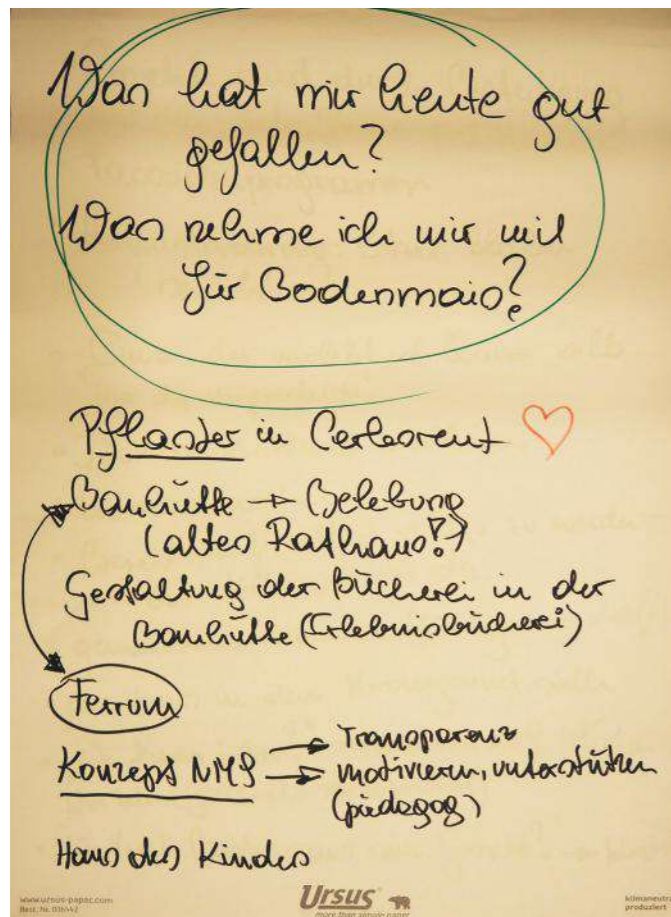 Was hat mir heute gut
gefallen?
Was nehme ich mir mit
für Bodenmais?
Pflaster in Cerkorent
Bauhütte → Belebung
(altes Rathaus!?)
Gestaltung der Bücherei in der
Bauhütte (Erlebnisbücherei)
Ferrum
Konzept NMS → Transparenz
→ motivieren, unterstützen
(pädagog)
Haus des Kindes
www.ursus-papac.com
Best. Nr. 036442
Ursus
more than simple paper
klimaneutra
produziert